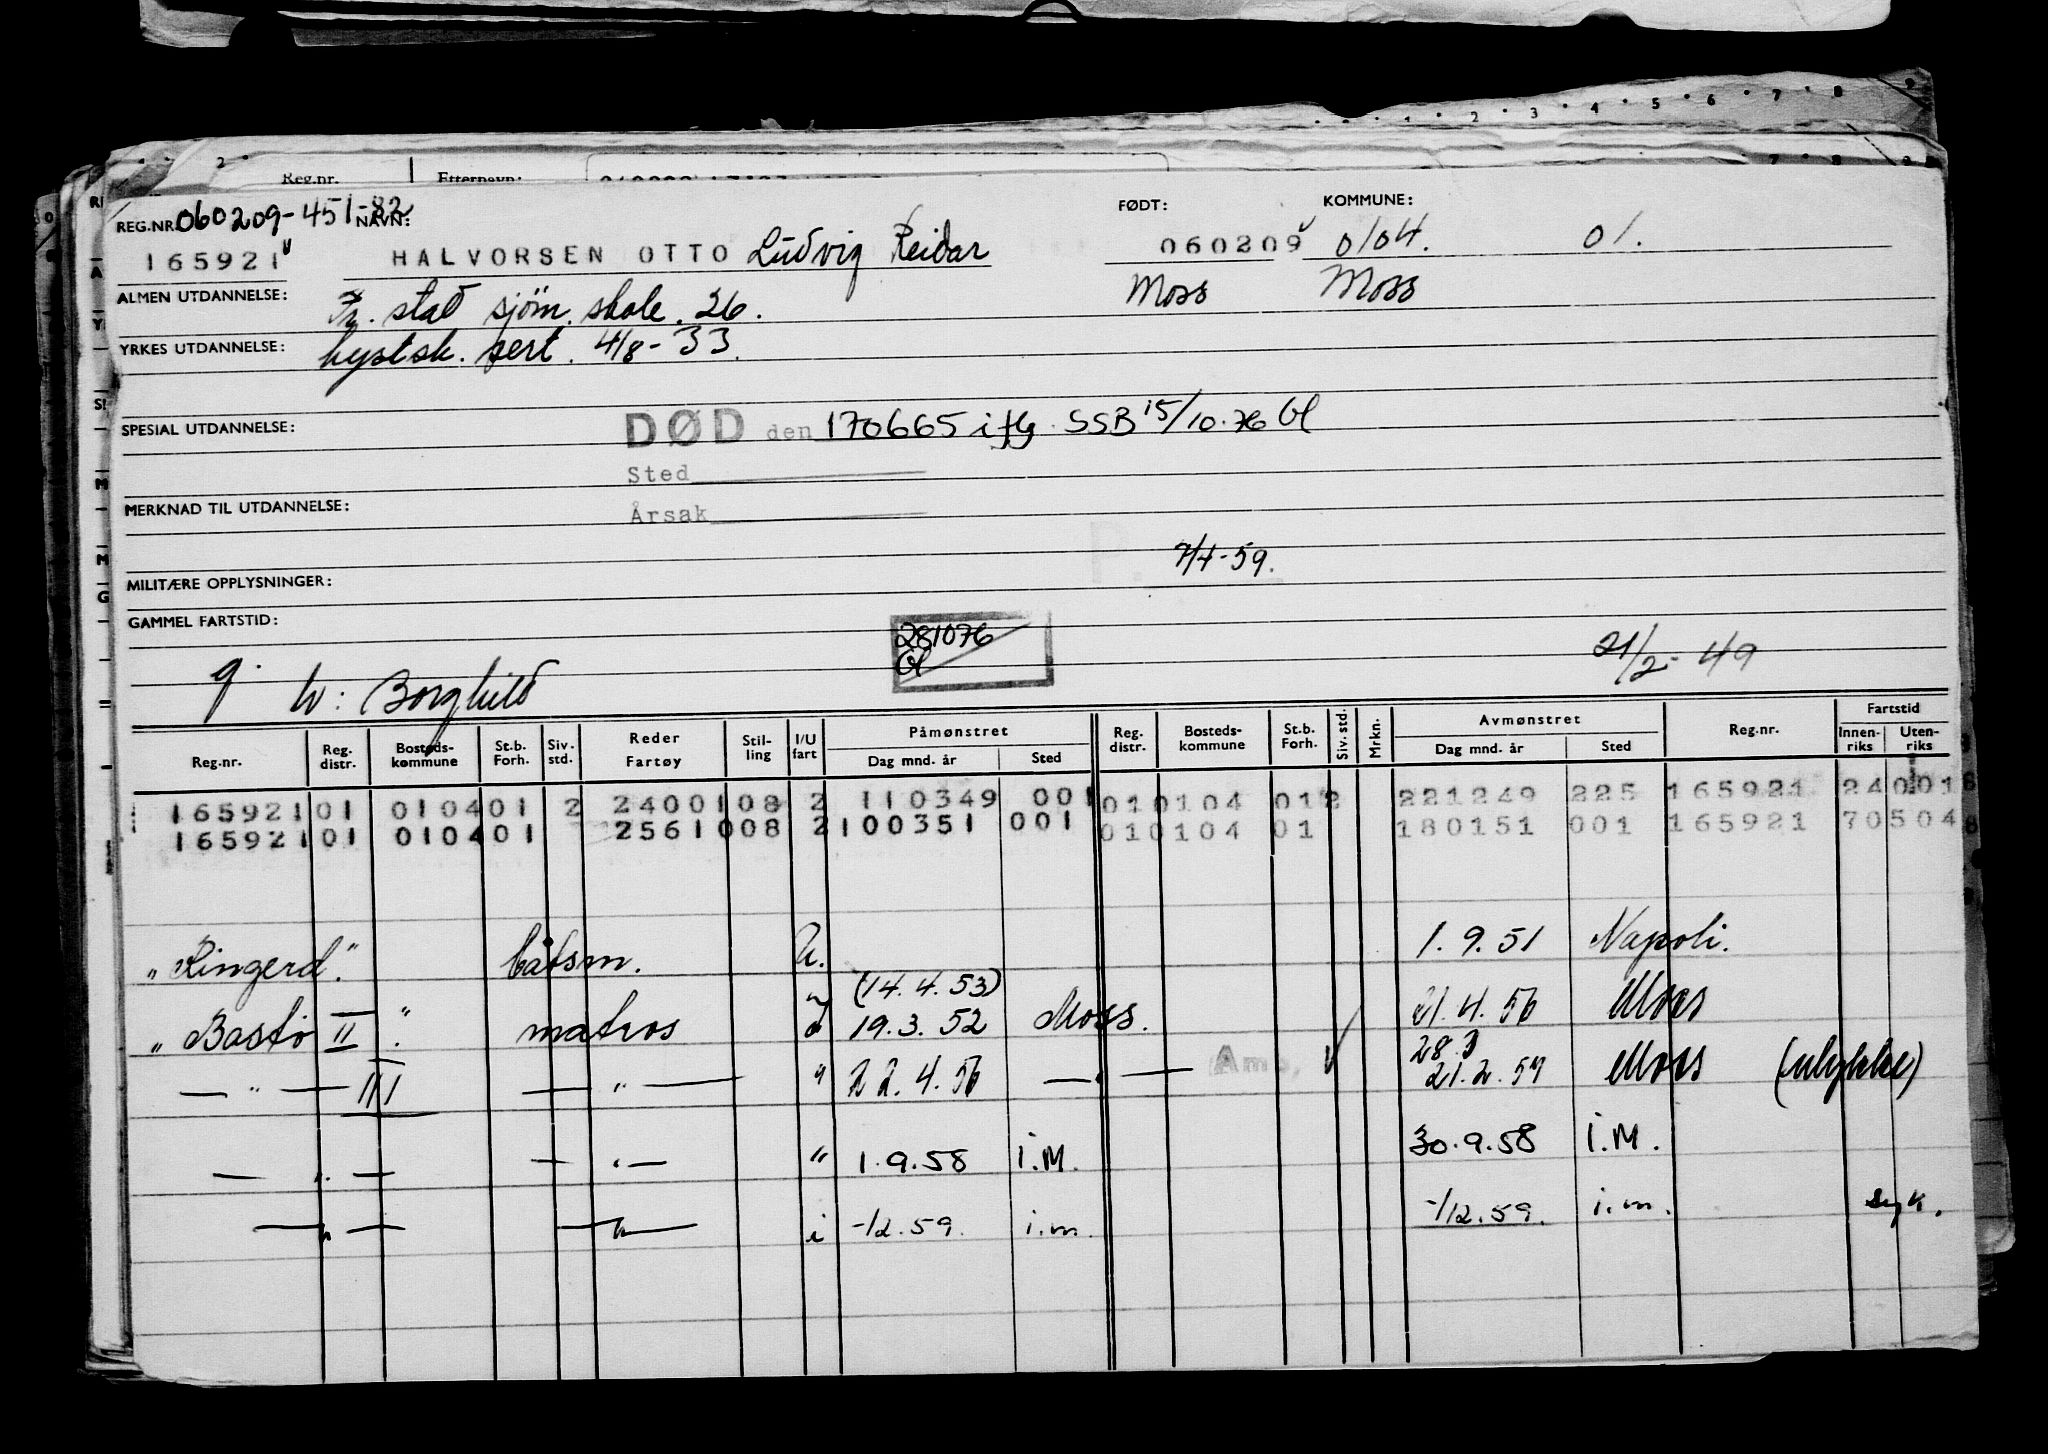 Reg.nr. Etternavn:
REG.NR. 060209-451-82 NAVN: FØDT: KOMMUNE:
165921 HALVORSEN OTTO Ludvig Reidar 060209 0104. 01.
ALMEN UTDANNELSE: Fr. stad sjöm. skole. 26. Moss Moss
YRKES UTDANNELSE: kystsk. sert. 4/8-33.
SPESIAL UTDANNELSE: DØD den 170665 iflg. SSB 15/10.76
Sted
MERKNAD TIL UTDANNELSE: Årsak
7/4-59.
MILITÆRE OPPLYSNINGER:
GAMMEL FARTSTID:
281076
21/2-49
g. h: Borghild
Reg.nr. Reg. distr. Bosteds-kommune St.b. Forh. Siv. std. Reder Fartøy Stil-ling I/U fart Påmønstret Dag mnd. år Sted Reg. distr. Bosteds-kommune St.b. Forh. Siv. std. Mrkn. Avmønstret Dag mnd. år Sted Reg.nr. Fartstid Innen-riks Uten-riks
165921 01 0104 01 2 24001 08 2 110349 001 01 0104 01 2 221249 225 165921 24 0018
165921 01 0104 01 25610 08 2 100351 001 01 0104 01 180151 001 165921 70 5048
"Ringerd". båtsm. U. 1.9.51 Napoli.
(14.4.53)
"Bastø II". matros 19.3.52 Moss. 21.4.56 Moss
28.3
— " — III — " — " 22.4.56 — " — Am 21.2.57 Moss (ulykke)
— " — — " — " 1.9.58 i.M. 30.9.58 i.M.
— " — — " — i -12.59. i.m. -12.59. i.m. syk.